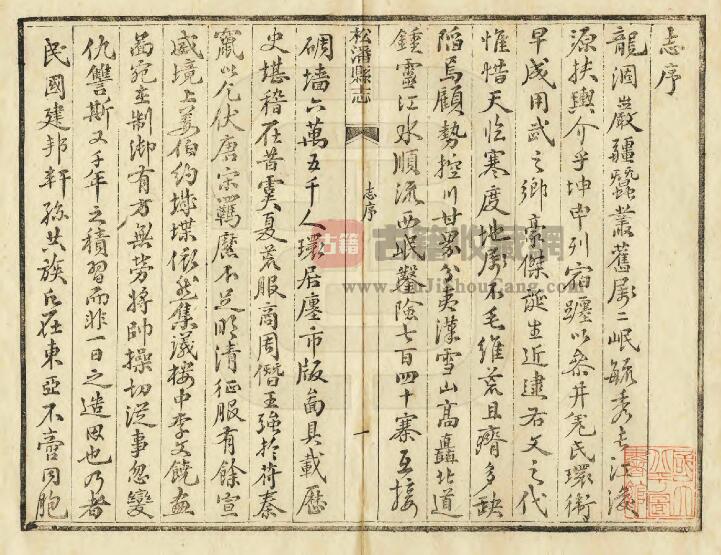 志序
龍涸巖疆蠶叢舊屬二岷毓秀長江濬
源扶輿介乎坤申列宿躔以參井羌氏環衛
早成用武之鄉豪傑誕生近逮右文之代
惟惜天怯寒度地屬不毛維荒且瘠多缺
陷焉顧勢控川甘界分夷漢雪山高矗北道
鍾靈江水順流西岷鑿險七百四十寨互接
松潘縣志 志序 一
碉墻六萬五千人環居廛市版啚具載歷
史堪稽在昔虞夏荒服商周僭王強於苻秦
竄以乞伏唐宋羈縻不足明清征服有餘宣
威境上姜伯約堞依然集議樓中李文饒畫
啚宛在制御有方無勞將帥操切從事忽變
仇讐斯又千年之積習而非一日之造因也乃者
民國建邦軒孫共族氏在東亞不啻同胞
古籍 古籍收藏网
www.GuJiShouCang.com